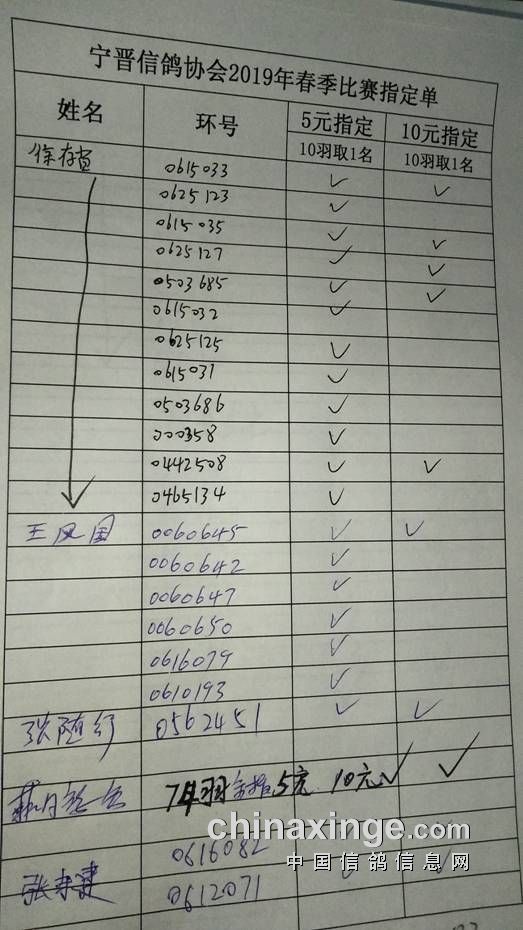 宁晋信鸽协会2019年春季比赛指定单
姓名 环号 5元指定 10元指定
10羽取1名 10羽取1名
徐存 0615033 ✓ ✓
0625123 ✓
0615035 ✓ ✓
0625127 ✓ ✓
0503685 ✓ ✓
0615032 ✓
0625125 ✓
0615031 ✓
0503686 ✓
000358 ✓
0442508 ✓ ✓
0465134 ✓
王凤国 0060645 ✓ ✓
0060642 ✓
0060647 ✓
0060650 ✓
0616079 ✓
0610193 ✓
张随行 0562451 ✓ ✓
羽全指5元 10元 ✓ ✓
0616082
张 0612071 ✓ ✓
chinaxinge.com
中国信鸽信息网